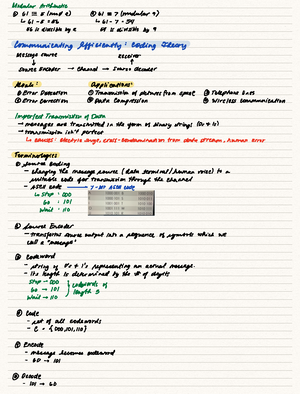 Modular Arithmetic
① 61 ≡ 5 (mod 8) ② 61 ≡ 7 (modular 9)
↳ 61 - 5 = 56 ↳ 61 - 7 = 54
56 is divisible by 8 54 is divisible by 9
Communicating Efficiently: Coding Theory
Message Source Receiver
Source Encoder → Channel → Source Decoder
Goals: Applications:
① Error Detection ① Transmission of pictures from space ③ Telephone lines
② Error Correction ② Data Compression ④ Wireless Communication
Imperfect Transmission of Data
→ messages are transmitted in the form of binary strings (0s & 1s)
→ transmission isn't perfect
↳ causes: Electric surge, cross-contamination from data stream, human error
Terminologies
① Source Coding
- changing the message source (data terminal/human voice) to a
suitable code for transmission through the channel
- ASCII code → 7-bit ASCII code
↳ Stop - 000
Go - 101
Wait - 110
② Source Encoder
- transforms source output into a sequence of symbols which we
call a "message"
③ Codeword
- string of 0's & 1's representing an actual message.
- its length is determined by the # of digits
Stop → 000
Go → 101 codewords of
Wait → 110 length 3
④ Code
- set of all codewords
- C = {000, 101, 110}
⑤ Encode
- message becomes codeword
- GO → 101
⑥ Decode
- 101 → GO